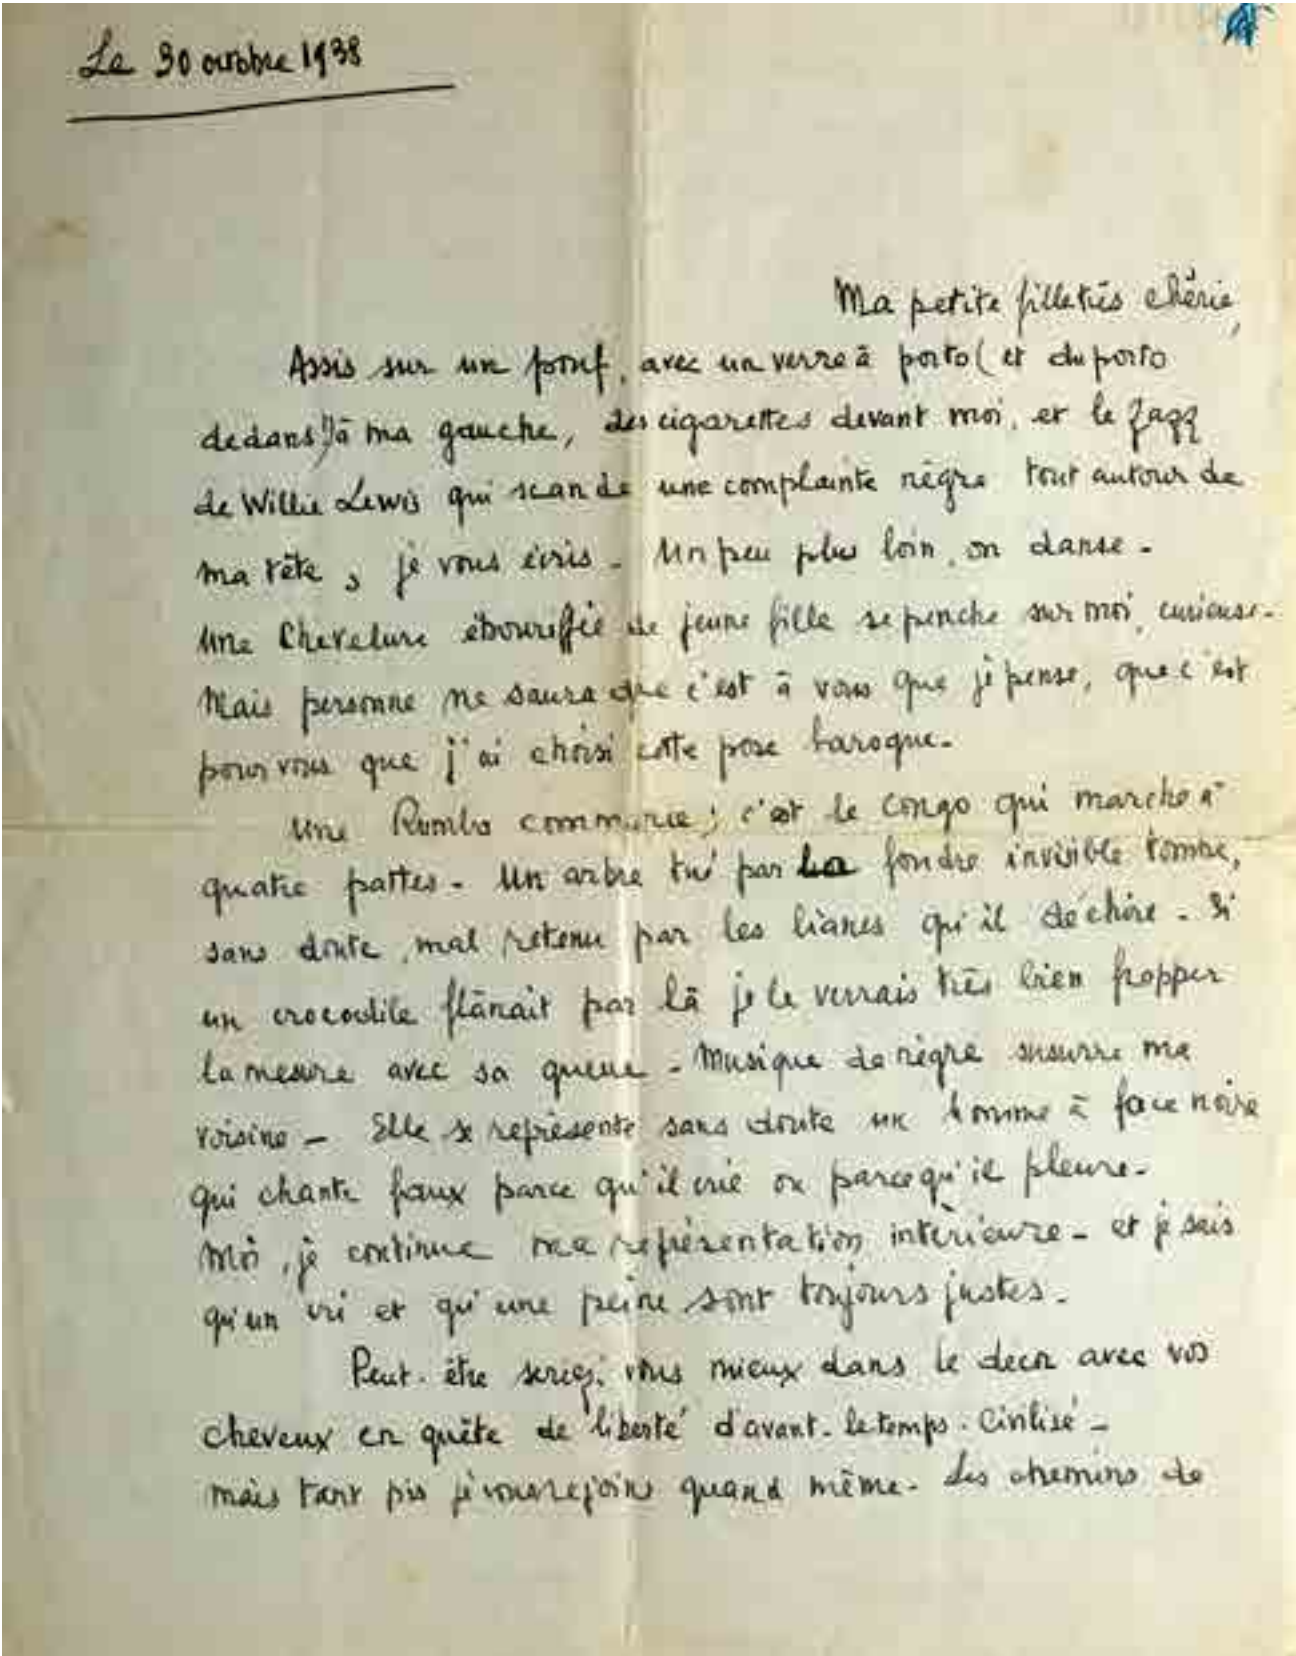 Le 30 octobre 1938
Ma petite fille très chérie,
Assis sur un pouf, avec un verre à porto (et du porto
dedans!) à ma gauche, des cigarettes devant moi, et le Jazz
de Willie Lewis qui scande une complainte nègre tout autour de
ma tête, je vous écris - Un peu plus loin, on danse -
Une chevelure ébouriffée de jeune fille se penche sur moi, curieuse -
Mais personne ne saura que c'est à vous que je pense, que c'est
pour vous que j'ai choisi cette pose baroque -
Une Rumba commence; c'est le Congo qui marche à
quatre pattes - Un arbre tué par la foudre invisible tombe,
sans doute, mal retenu par les lianes qu'il déchire - Si
un crocodile flânait par là je le verrais très bien frapper
la mesure avec sa queue - Musique de nègre susurre ma
voisine - Elle se représente sans doute un homme à face noire
qui chante faux parce qu'il crie ou parce qu'il pleure -
Moi, je continue ma représentation intérieure - et je sais
qu'un cri et qu'une peine sont toujours justes -
Peut-être seriez-vous mieux dans le decor avec vos
cheveux en quête de liberté d'avant-le temps-civilisé -
mais tant pis je vous rejoins quand même - Les chemins de